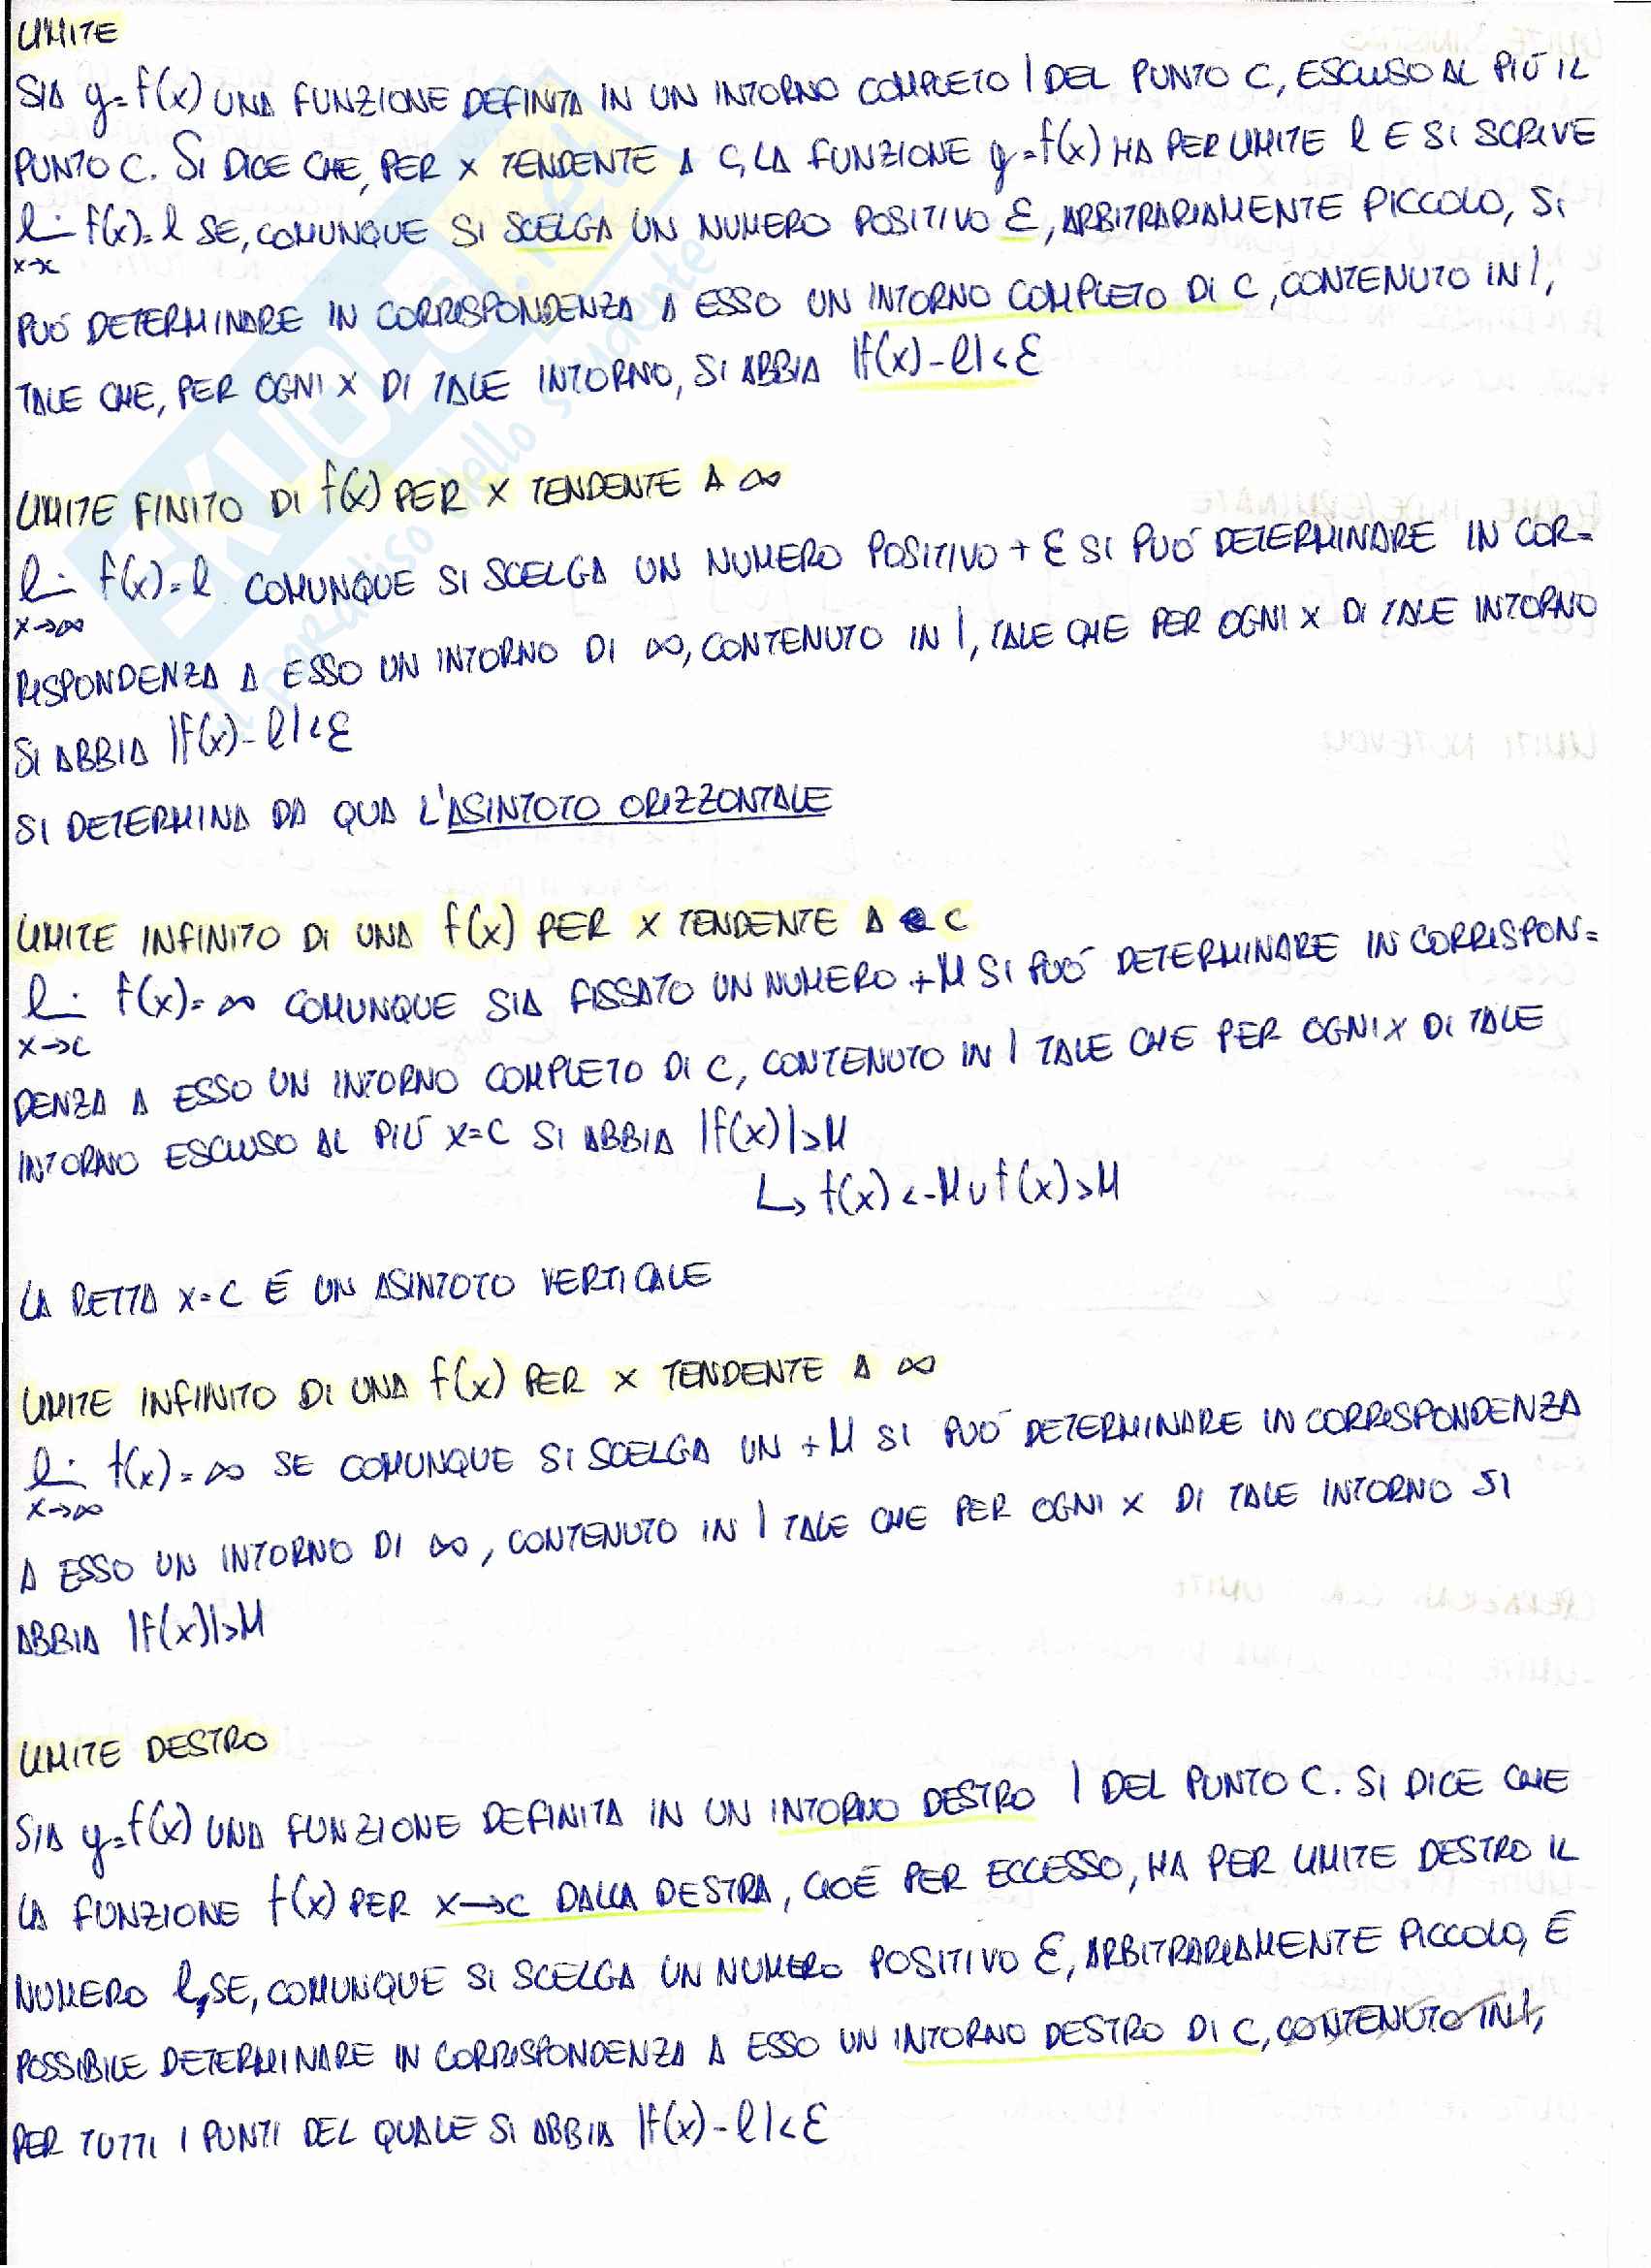 LIMITE
SIA y=f(x) UNA FUNZIONE DEFINITA IN UN INTORNO COMPLETO I DEL PUNTO C, ESCLUSO AL PIÙ IL
PUNTO C. SI DICE CHE, PER X TENDENTE A C, LA FUNZIONE y=f(x) HA PER LIMITE l E SI SCRIVE
lim f(x)=l SE, COMUNQUE SI SCELGA UN NUMERO POSITIVO Ɛ, ARBITRARIAMENTE PICCOLO, SI
x→c
PUÒ DETERMINARE IN CORRISPONDENZA A ESSO UN INTORNO COMPLETO DI C, CONTENUTO IN I,
TALE CHE, PER OGNI X DI TALE INTORNO, SI ABBIA |f(x)-l|<Ɛ
LIMITE FINITO DI f(x) PER X TENDENTE A ∞
lim f(x)=l COMUNQUE SI SCELGA UN NUMERO POSITIVO + Ɛ SI PUÒ DETERMINARE IN COR=
x→∞
RISPONDENZA A ESSO UN INTORNO DI ∞, CONTENUTO IN I, TALE CHE PER OGNI X DI TALE INTORNO
SI ABBIA |f(x)-l|<Ɛ
SI DETERMINA DA QUA L'ASINTOTO ORIZZONTALE
LIMITE INFINITO DI UNA f(x) PER X TENDENTE A C
lim f(x)=∞ COMUNQUE SIA FISSATO UN NUMERO +M SI PUÒ DETERMINARE IN CORRISPON=
x→c
DENZA A ESSO UN INTORNO COMPLETO DI C, CONTENUTO IN I TALE CHE PER OGNI X DI TALE
INTORNO ESCLUSO AL PIÙ X=C SI ABBIA |f(x)|>M
↳ f(x)<-M ∪ f(x)>M
LA RETTA X=C È UN ASINTOTO VERTICALE
LIMITE INFINITO DI UNA f(x) PER X TENDENTE A ∞
lim f(x)=∞ SE COMUNQUE SI SCELGA UN +M SI PUÒ DETERMINARE IN CORRISPONDENZA
x→∞
A ESSO UN INTORNO DI ∞, CONTENUTO IN I TALE CHE PER OGNI X DI TALE INTORNO SI
ABBIA |f(x)|>M
LIMITE DESTRO
SIA y=f(x) UNA FUNZIONE DEFINITA IN UN INTORNO DESTRO I DEL PUNTO C. SI DICE CHE
LA FUNZIONE f(x) PER X→C DALLA DESTRA, CIOÈ PER ECCESSO, HA PER LIMITE DESTRO IL
NUMERO l, SE, COMUNQUE SI SCELGA UN NUMERO POSITIVO Ɛ, ARBITRARIAMENTE PICCOLO, È
POSSIBILE DETERMINARE IN CORRISPONDENZA A ESSO UN INTORNO DESTRO DI C, CONTENUTO IN I,
PER TUTTI I PUNTI DEL QUALE SI ABBIA |f(x)-l|<Ɛ